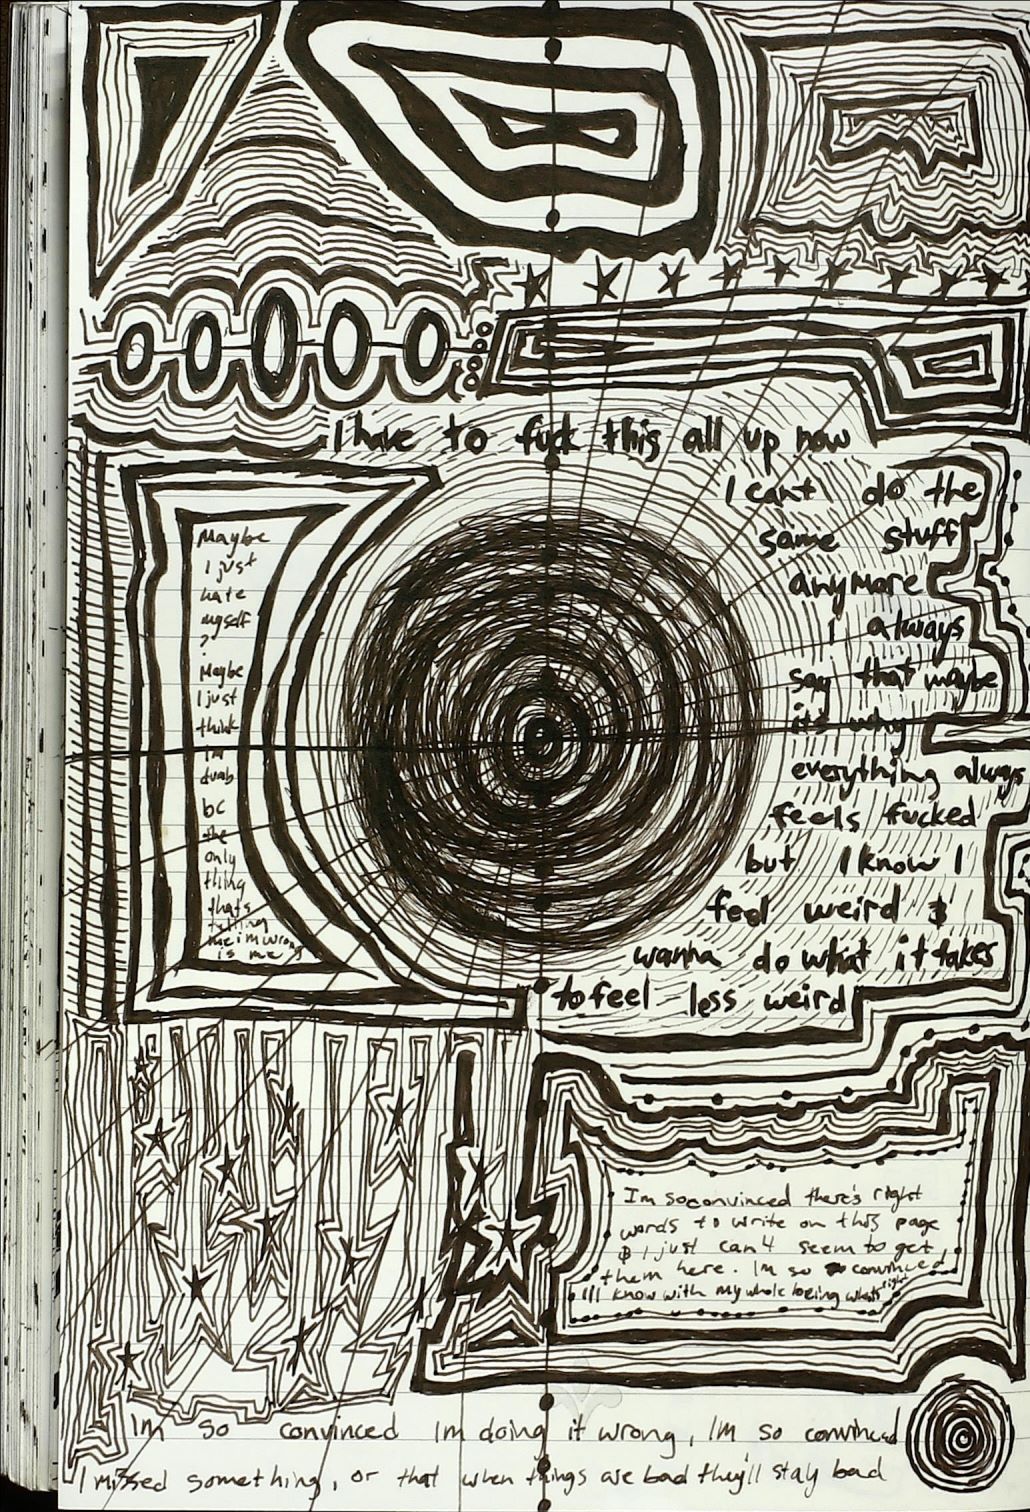 I have to fuck this all up now
I cant do the
same stuff
anymore
I always
say that maybe
its why
everything always
feels fucked
but I know I
feel weird &
wanna do what it takes
to feel less weird
Maybe
I just
hate
myself
?
Maybe
I just
think
im
dumb
bc
the
only
thing
thats
telling
me im wrong
is me
Im so convinced there's right
words to write on this page
& I just can't seem to get
them here. Im so convinced
I'll know with my whole being whats right
Im so convinced Im doing it wrong, Im so convinced
I missed something, or that when things are bad they'll stay bad